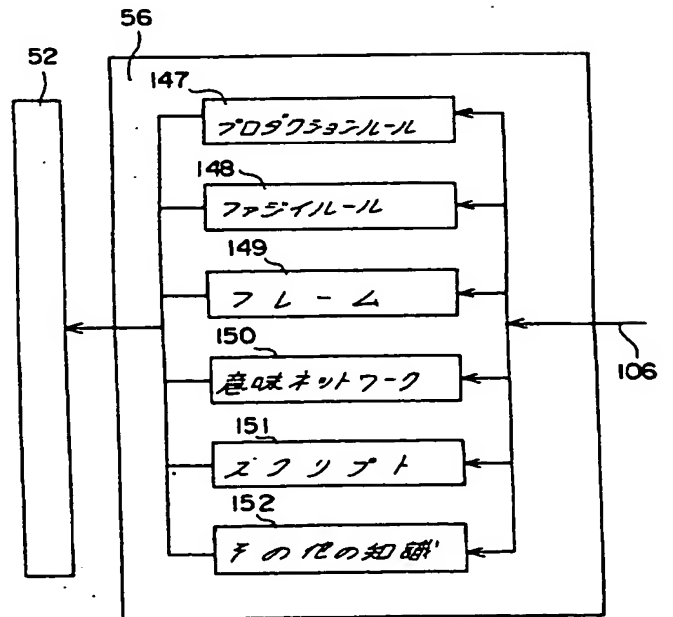 56
52
147
プロダクションルール
148
ファジイルール
149
フレーム
106
150
意味ネットワーク
151
スクリプト
152
その他の知識